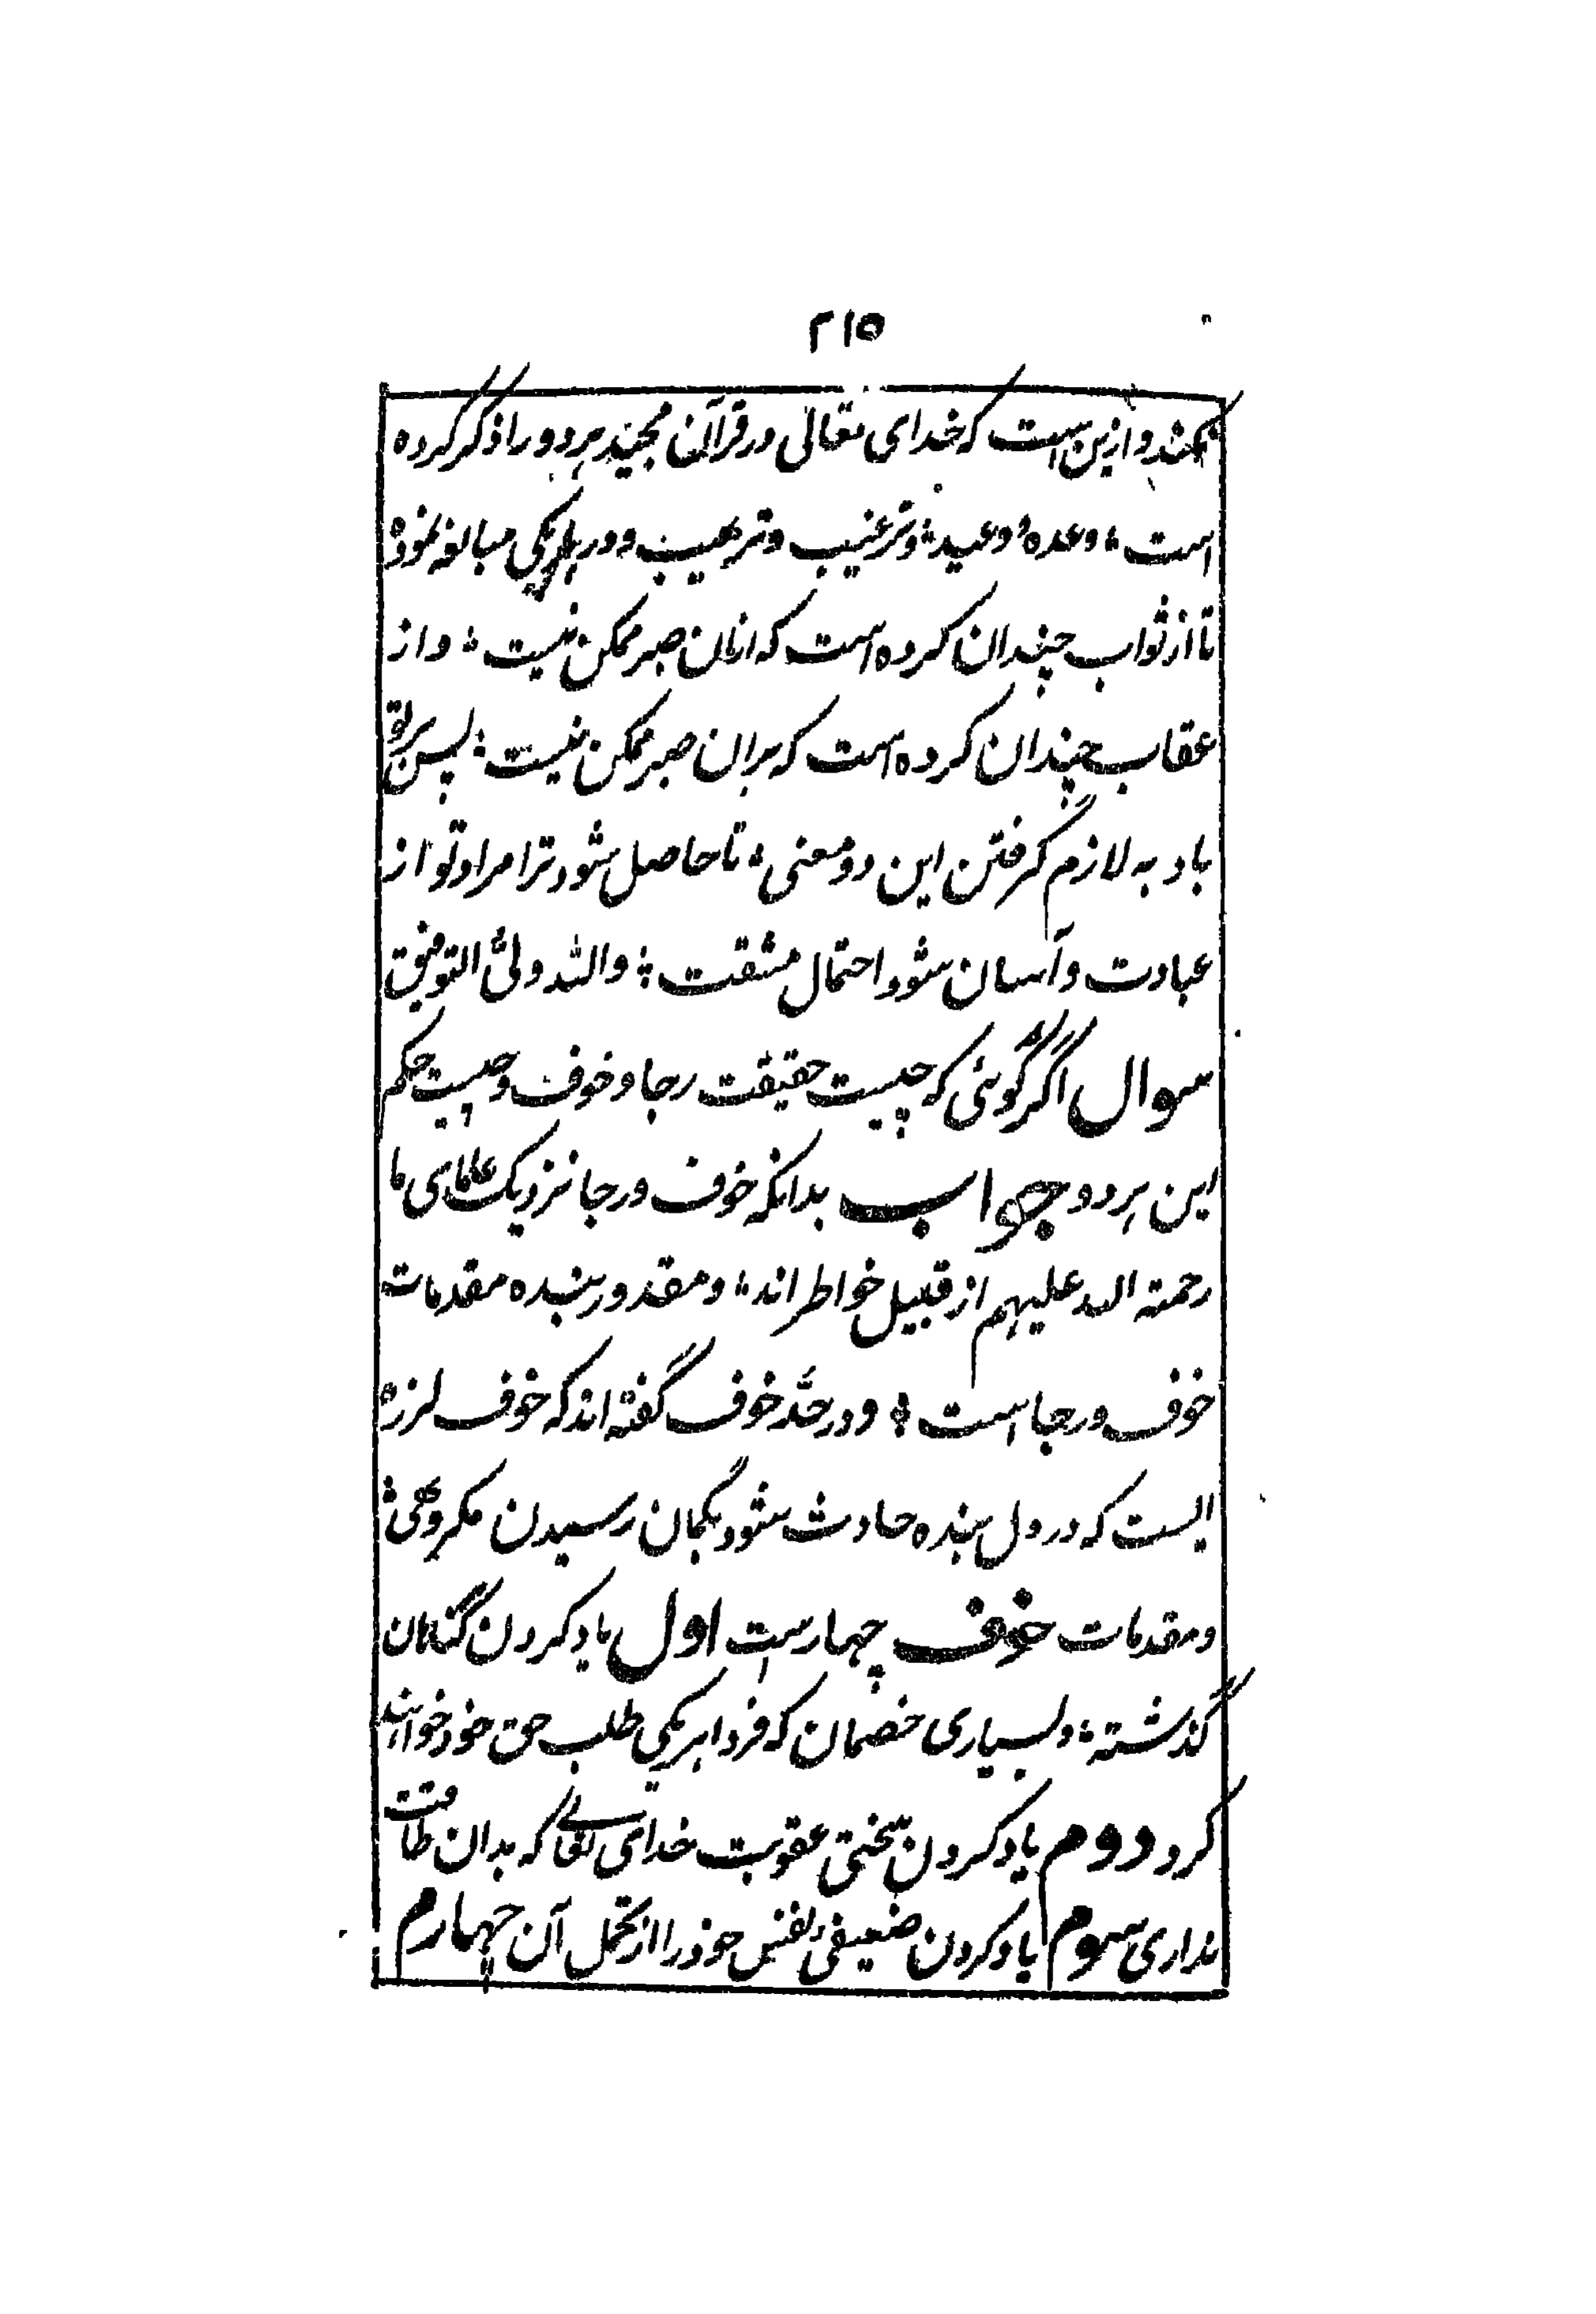 ۲۱۵
نکند و ازین است که خدای تعالی در قرآن مجید هر دو را ذکر کرده
است، وعده و وعید، و ترغیب و ترهیب و در هر یکی مبالغه نموده
تا از ثواب چندان کرده است که ازان صبر ممکن نیست، و از
عقاب چندان کرده است که بران صبر ممکن نیست، پس بر تو
باد به لازم گرفتن این دو معنی، تا حاصل شود ترا مراد تو از
عبادت و آسان شود احتمال مشقت، والله ولیّ التوفیق
سوال اگر گوئی که چیست حقیقت رجا و خوف و چیست حکم
این هر دو جواب بدانکه خوف و رجا نزدیک علمای ما
رحمته الله علیهم از قبیل خواطر اند، و مقدور بنده مقدمات
خوف و رجا است، و در حدّ خوف گفته اند که خوف لرزه
ایست که در دل بنده حادث شود بگمان رسیدن مکروهی
و مقدمات خوف چهارست اول یاد کردن گناهان
گذشته، و بسیاری خصمان که فردا هر یکی طلب حق خود خواهند
کرد دوم یاد کردن سختی عقوبت خدای تعالی که بدان طاقت
نداری سوم یاد کردن ضعیفیٔ نفس خود را از تحمل آن چهارم